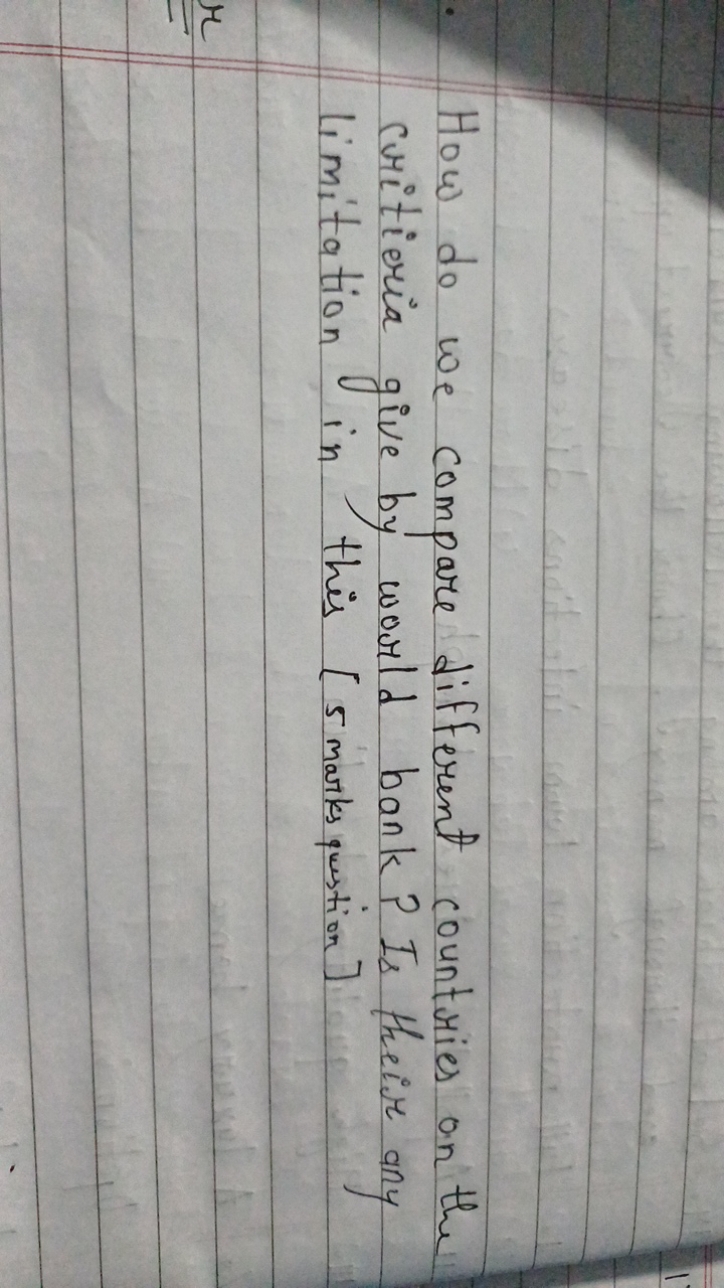 How do we compare different countries on the
critieria give by world bank? Is their any
limitation in this [5 marks question]